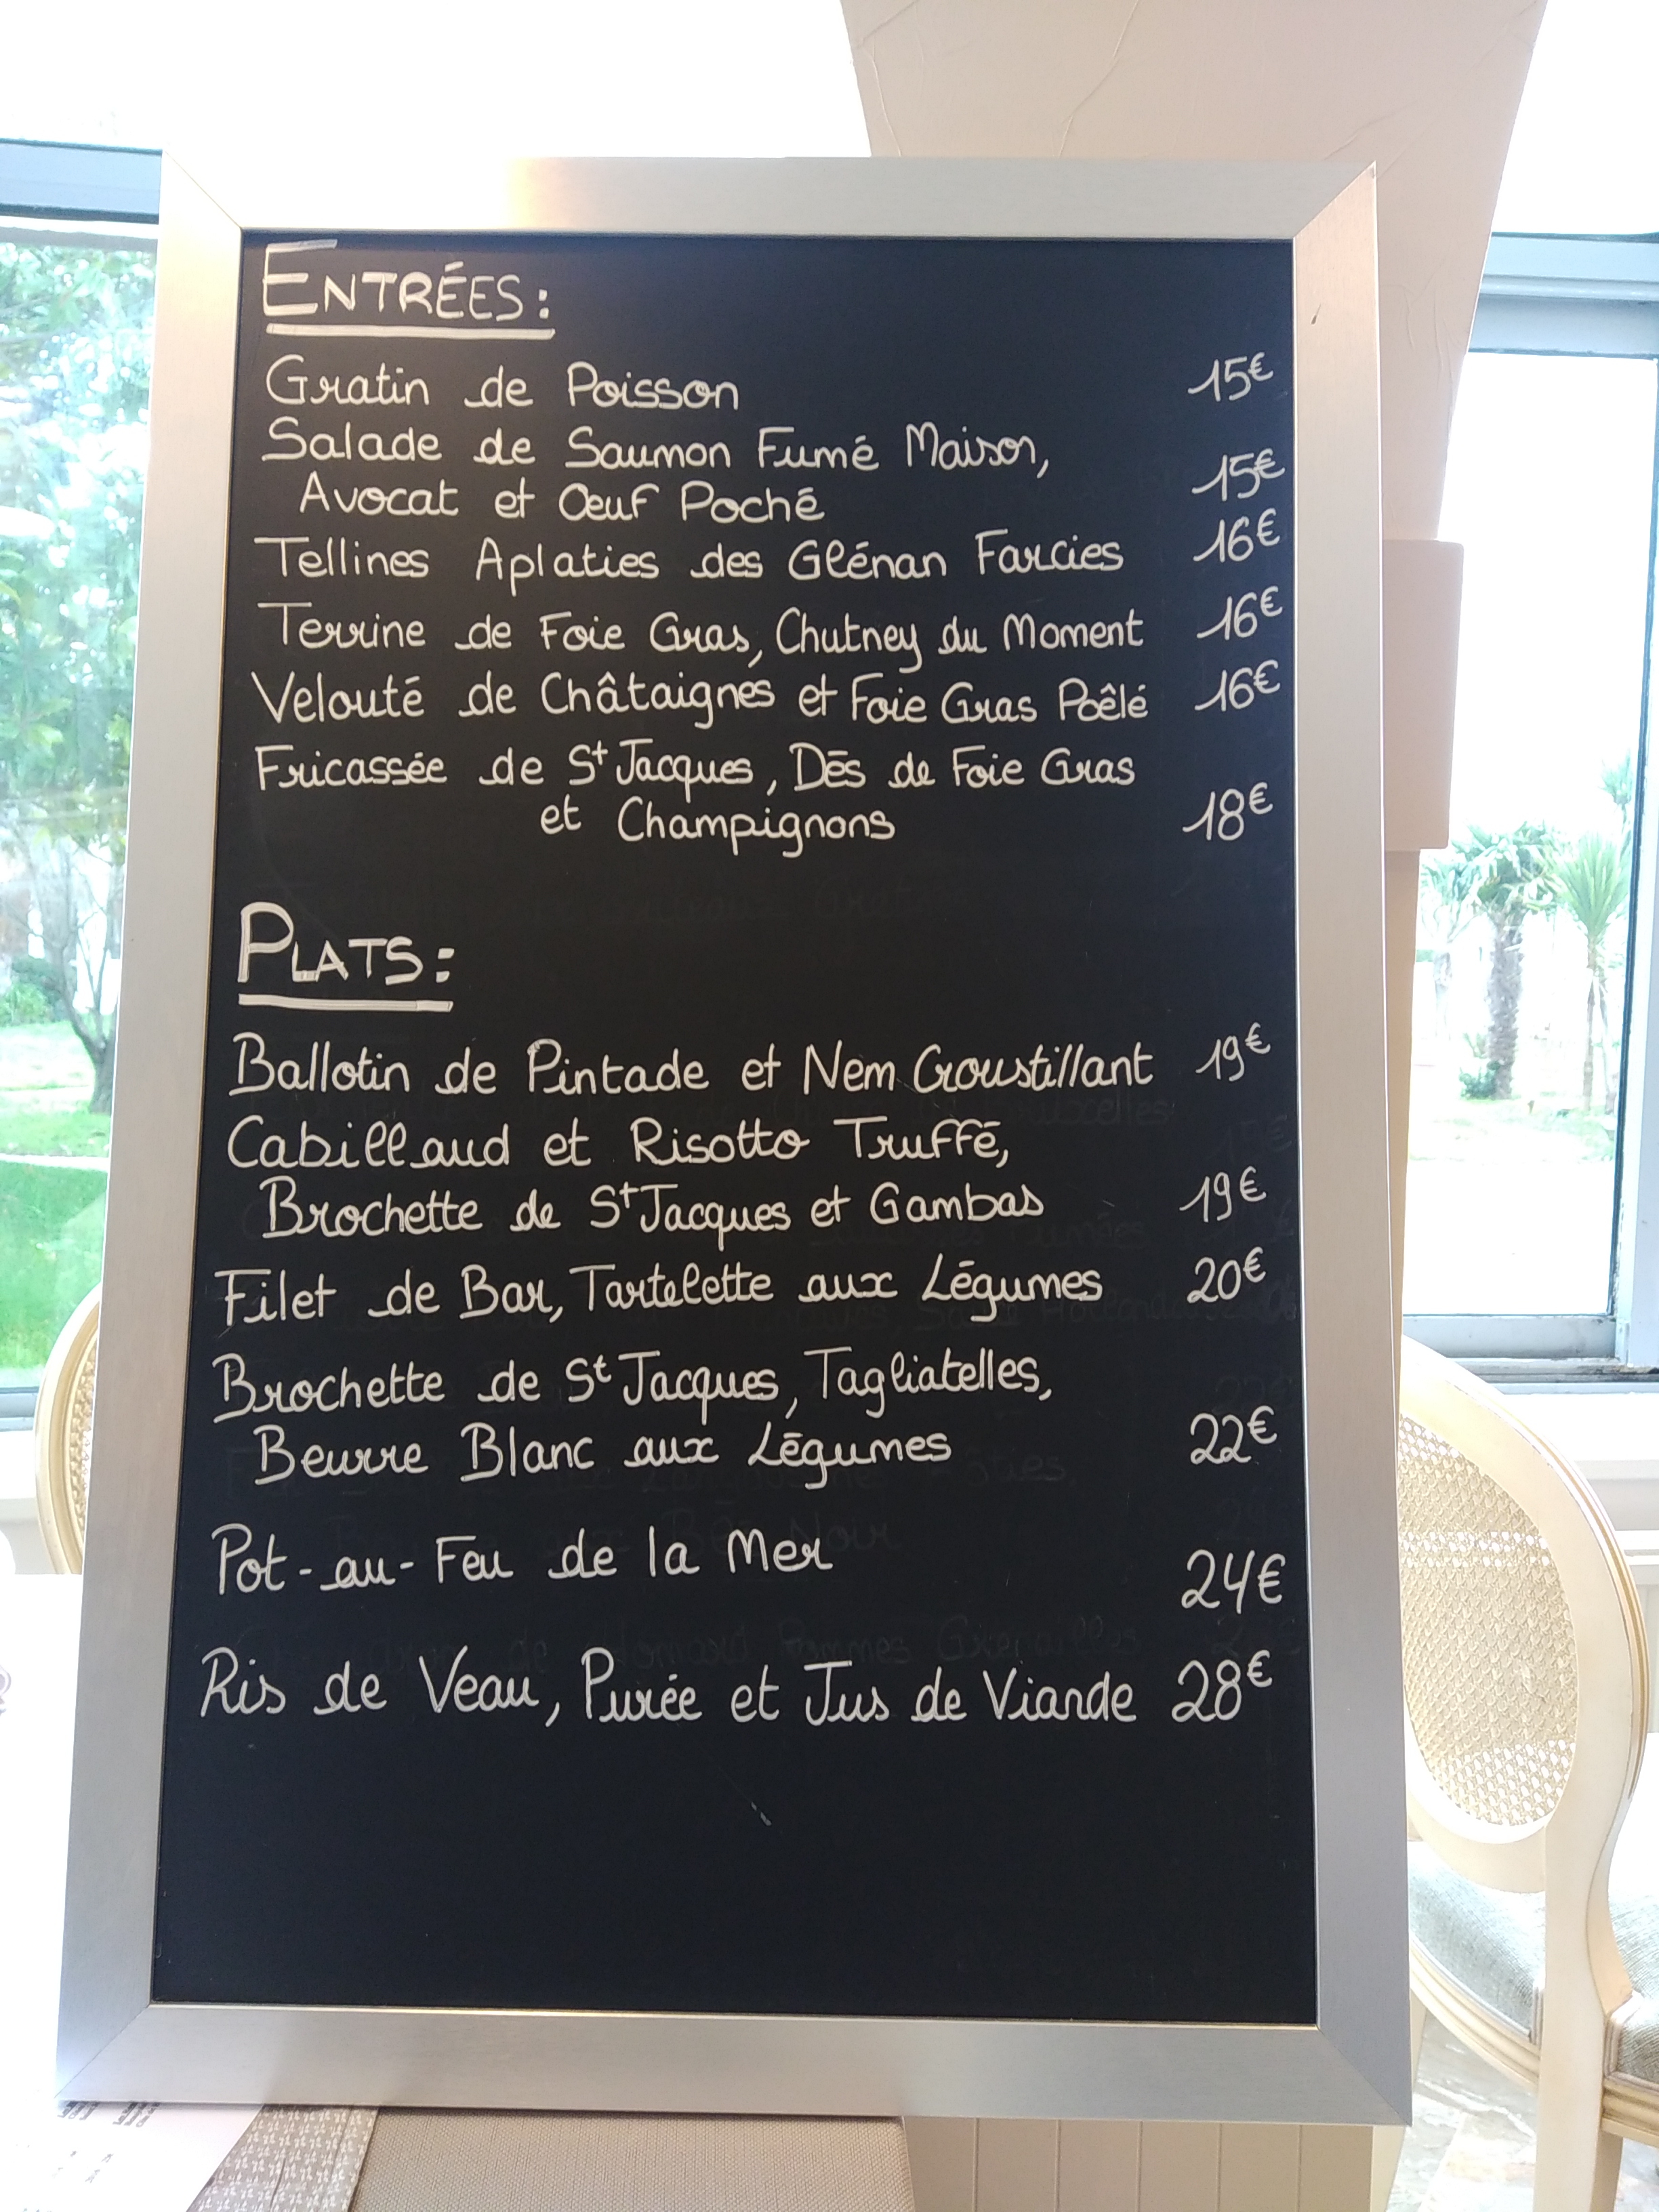 ENTRÉES:
Gratin de Poisson 15€
Salade de Saumon Fumé Maison,
Avocat et Œuf Poché 15€
Tellines Aplaties des Glénan Farcies 16€
Terrine de Foie Gras, Chutney du Moment 16€
Velouté de Châtaignes et Foie Gras Poêlé 16€
Fricassée de St Jacques, Dés de Foie Gras
et Champignons 18€
PLATS:
Ballotin de Pintade et Nem Croustillant 19€
Cabillaud et Risotto Truffé,
Brochette de St Jacques et Gambas 19€
Filet de Bar, Tartelette aux Légumes 20€
Brochette de St Jacques, Tagliatelles,
Beurre Blanc aux Légumes 22€
Pot-au-Feu de la Mer 24€
Ris de Veau, Purée et Jus de Viande 28€